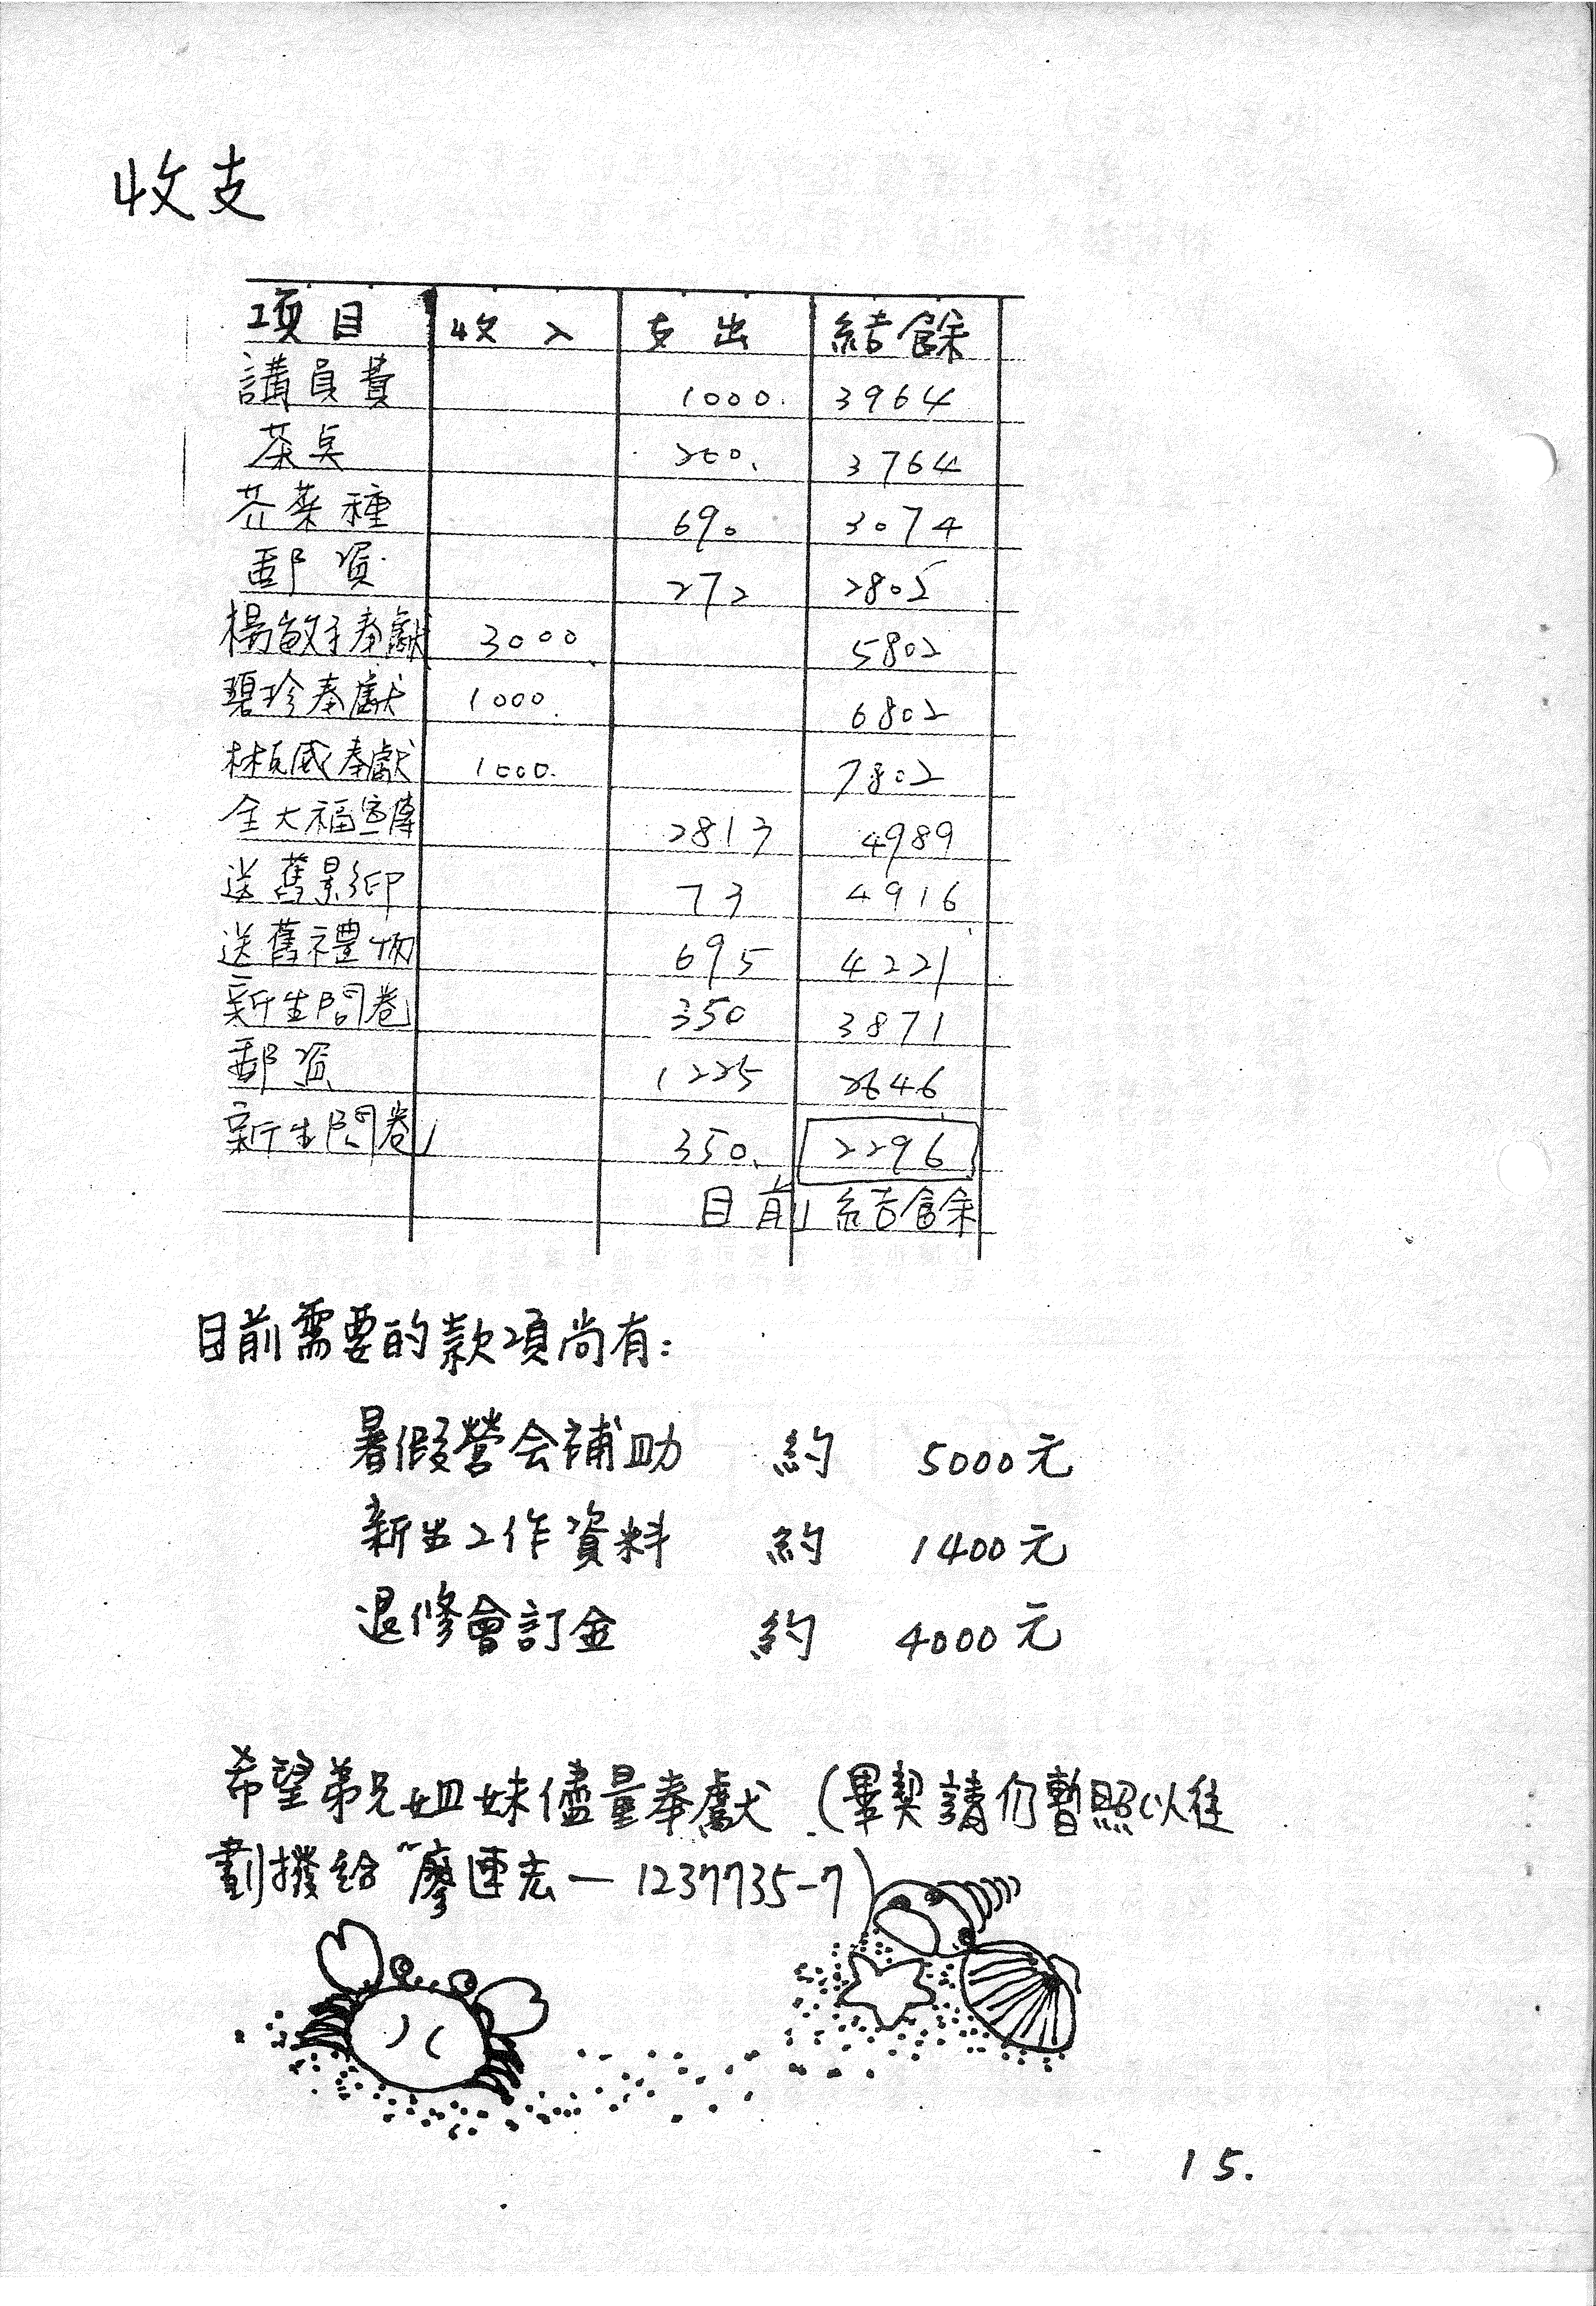 收支
項目 收入 支出 結餘
講員費 1000. 3964
茶桌 200. 3764
芥菜種 690 3074
郵資 272 2802
楊敏子奉獻 3000 5802
碧珍奉獻 1000. 6802
奉獻 1000. 7802
全大福宣傳 2813 4989
送舊影印 73 4916
送舊禮物 695 4221
新生問卷 350 3871
郵資 1225 2646
新生問卷 350. 2296
目前結餘
目前需要的款項尚有:
暑假營会補助 約 5000元
新生工作資料 約 1400元
退修會訂金 約 4000元
希望弟兄姐妹儘量奉獻 (畢契請仍暫照以往
劃撥給 "廖連宏 — 1237735-7)
15.